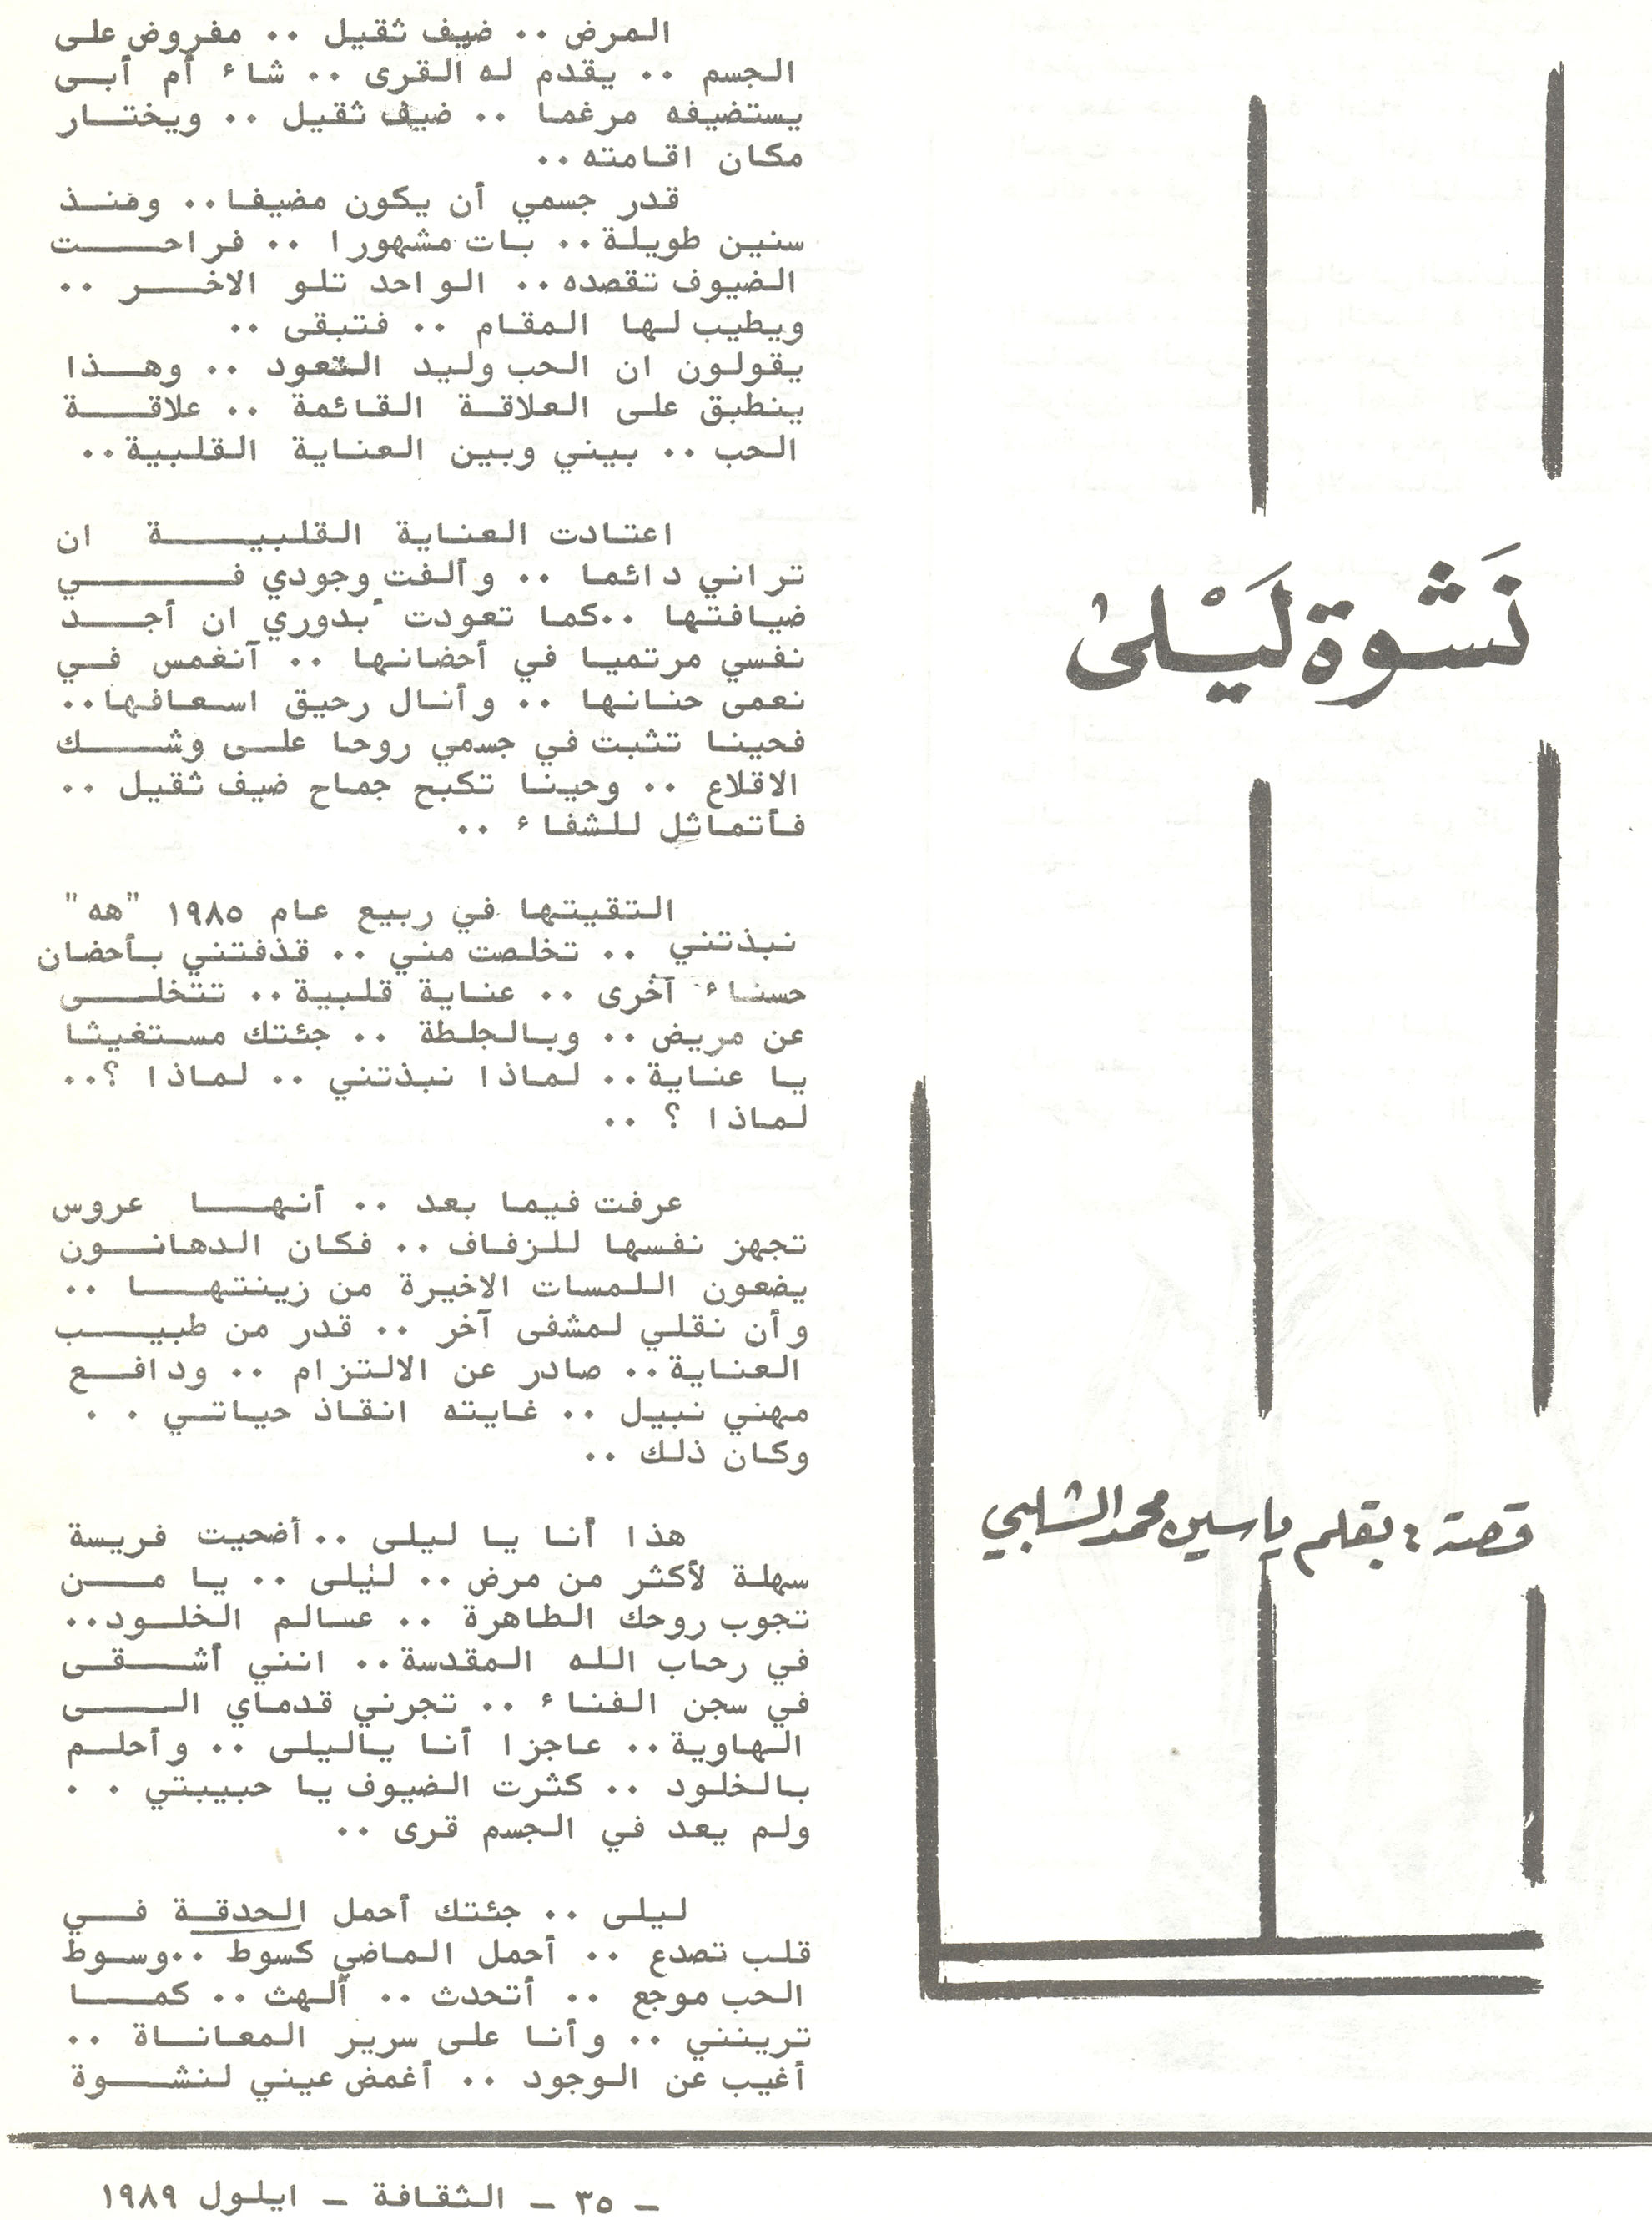 نَشْوة لَيْلىٰ
قصة : بقلم ياسين محمد الشلبي
المرض .. ضيف ثقيل .. مفروض على
الجسم .. يقدم له القرى .. شاء أم أبى
يستضيفه مرغما .. ضيف ثقيل .. ويختار
مكان اقامته ..
قدر جسمي أن يكون مضيفا .. ومنذ
سنين طويلة .. بات مشهورا .. فراحت
الضيوف تقصده .. الواحد تلو الاخر ..
ويطيب لها المقام .. فتبقى ..
يقولون ان الحب وليد التعود .. وهذا
ينطبق على العلاقة القائمة .. علاقة
الحب .. بيني وبين العناية القلبية ..
اعتادت العناية القلبية ان
تراني دائما .. وألفت وجودي في
ضيافتها .. كما تعودت بدوري ان أجد
نفسي مرتميا في أحضانها .. أنغمس في
نعمى حنانها .. وأنال رحيق اسعافها ..
فحينا تثبت في جسمي روحا على وشك
الاقلاع .. وحينا تكبح جماح ضيف ثقيل ..
فأتماثل للشفاء ..
التقيتها في ربيع عام ١٩٨٥ "هه"
نبذتني .. تخلصت مني .. قذفتني بأحضان
حسناء أخرى .. عناية قلبية .. تتخلى
عن مريض .. وبالجلطة .. جئتك مستغيثا
يا عناية .. لماذا نبذتني .. لماذا ؟ ..
لماذا ؟ ..
عرفت فيما بعد .. أنها عروس
تجهز نفسها للزفاف .. فكان الدهانون
يضعون اللمسات الاخيرة من زينتها ..
وأن نقلي لمشفى آخر .. قدر من طبيب
العناية .. صادر عن الالتزام .. ودافع
مهني نبيل .. غايته انقاذ حياتي . .
وكان ذلك ..
هذا أنا يا ليلى .. أضحيت فريسة
سهلة لأكثر من مرض .. ليلى .. يا من
تجوب روحك الطاهرة .. عالم الخلود ..
في رحاب الله المقدسة .. انني أشقى
في سجن الفناء .. تجرني قدماي الى
الهاوية .. عاجزا أنا ياليلى .. وأحلم
بالخلود .. كثرت الضيوف يا حبيبتي . .
ولم يعد في الجسم قرى ..
ليلى .. جئتك أحمل الحدقة في
قلب تصدع .. أحمل الماضي كسوط .. وسوط
الحب موجع .. أتحدث .. ألهث .. كما
ترينني .. وأنا على سرير المعاناة ..
أغيب عن الوجود .. أغمض عيني لنشوة
- ٣٥ - الثقافة - ايلول ١٩٨٩